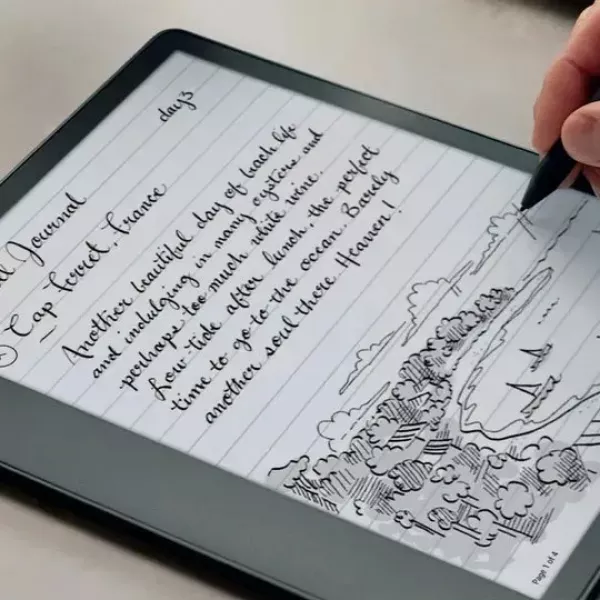 day3
el Journal
Cap Ferret, France
Another beautiful day of beach life
and indulging in many oysters and
perhaps too much white wine.
Low-tide after lunch, the perfect
time to go to the ocean. Barely
another soul there. Heaven!
Page 1 of 4